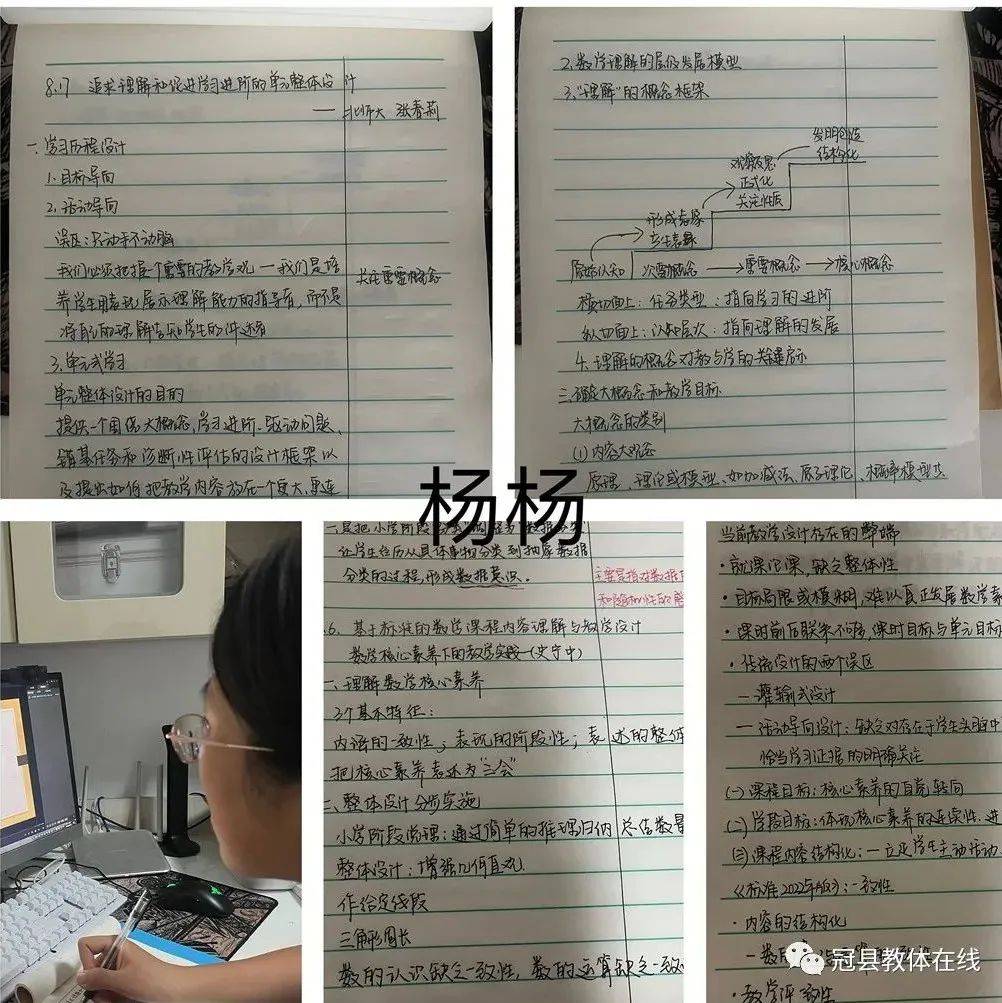 8.17 追求理解和促进学习进阶的单元整体设计
——北师大 张春莉
一、学习历程设计
1.目标导向
2.活动导向
误区:只动手不动脑
我们必须把握一个重要的教学观—我们是培
养学生用表现展示理解能力的指导者,而不是
将自己的理解告知学生的传述者
关注重要概念
3.单元式学习
单元整体设计的目的
提供一个围绕大概念,学习进阶、驱动问题、
锚基任务和诊断性评估的设计框架以
及提出如何把教学内容放在一个更大,更连
2.数学理解的层级发展模型
3."理解"的概念框架
发明创造
结构化
观察反思
正式化
关注性质
形成表象
产生表象
原始认知
次要概念→重要概念→核心概念
横切面上:任务类型:指向学习的进阶
纵切面上:认知层次:指向理解的发展
4.理解的概念对教与学的关键启示
三、确定大概念和教学目标
大概念的类别
(1)内容大观念
原理、理论或模型、如加减法、原子理论、概率模型等
杨杨
让学生经历从具体事物分类到抽象数据
分类的过程,形成数据意识。
主要是指对数据
和随机性的
6.基于标准的数学课程内容理解与教学设计
数学核心素养下的教学实践—(史宁中)
一、理解数学核心素养
3个基本特征:
内涵的一致性;表现的阶段性;表述的整体
把核心素养表述为"三会"
二、整体设计分步实施
小学阶段说理:通过简单的推理归纳 总结数量
整体设计:增强几何直观
作给定线段
三角形周长
数的认识缺乏一致性,数的运算缺乏一致
当前教学设计存在的弊端
·就课论课,缺乏整体性
·目标局限或模糊,难以真正发展数学素
·课时前后联系不够,课时目标与单元目标
·传统设计的两个误区
—灌输式设计
—活动导向设计:缺乏对存在于学生头脑中
恰当学习证据的明确关注
(一)课程目标:核心素养的自觉转向
(二)学段目标:体现核心素养的连续性、进
(三)课程内容结构化:—立足学生主动活动
《标准2022年版》:一致性
·内容的结构化
·教学评一致性
冠县教体在线